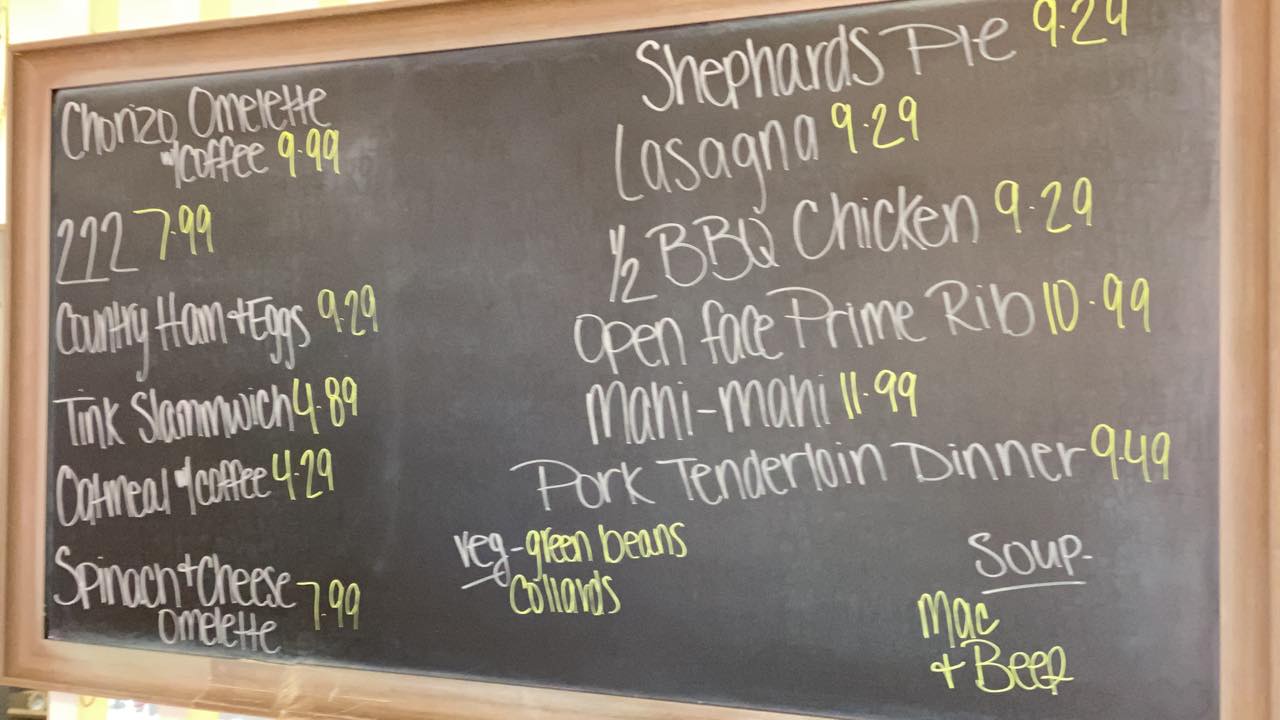 Chorizo Omelette
w/coffee 9.99
222 7.99
Country Ham + Eggs 9.29
Tink Slammwich 4.89
Oatmeal w/coffee 4.29
Spinach + Cheese 7.99
Omelette
Shephards Pie 9.29
Lasagna 9.29
1/2 BBQ Chicken 9.29
Open face Prime Rib 10.99
Mahi-mahi 11.99
Pork Tenderloin Dinner 9.49
veg - green beans
Collards
Soup-
Mac
+ Beef